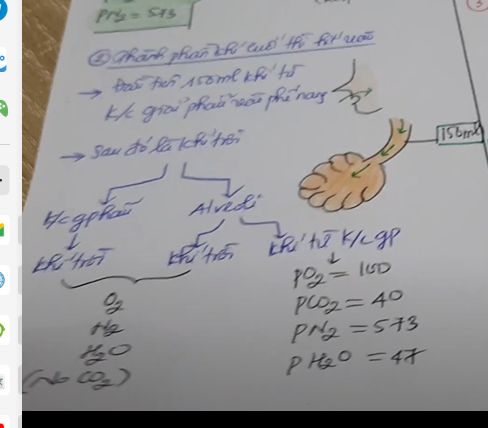 PN2 = 573
② Thành phần khí cuối thì hít vào
→ Đầu tiên 150ml khí từ
K/c giải phẫu vào phế nang
150ml
→ Sau đó là khí trời
K/c gphẫu Alveoli
khí trời khí trời khí từ K/c gp
O2
N2
H2O
(No CO2)
PO2 = 100
PCO2 = 40
PN2 = 573
PH2O = 47
3